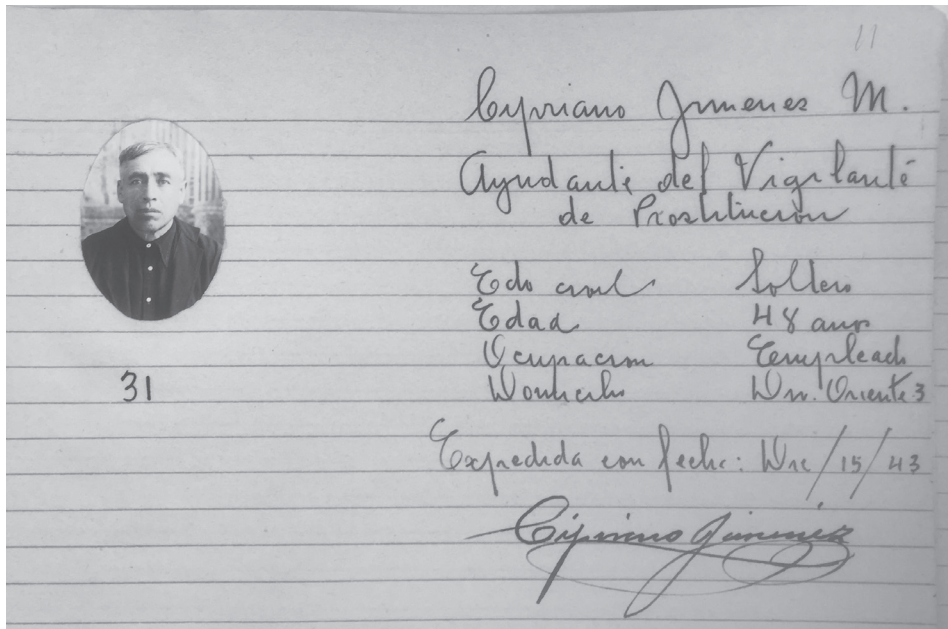 11
Cypriano Jimenes M.
Ayudante del Vigilante
de Prostitucion
Edo civil Soltero
Edad 48 anos
Ocupacion Empleado
Domicilio Div. Oriente 3
31
Expedida con fecha: Dic/15/43
Cipriano Jimenez